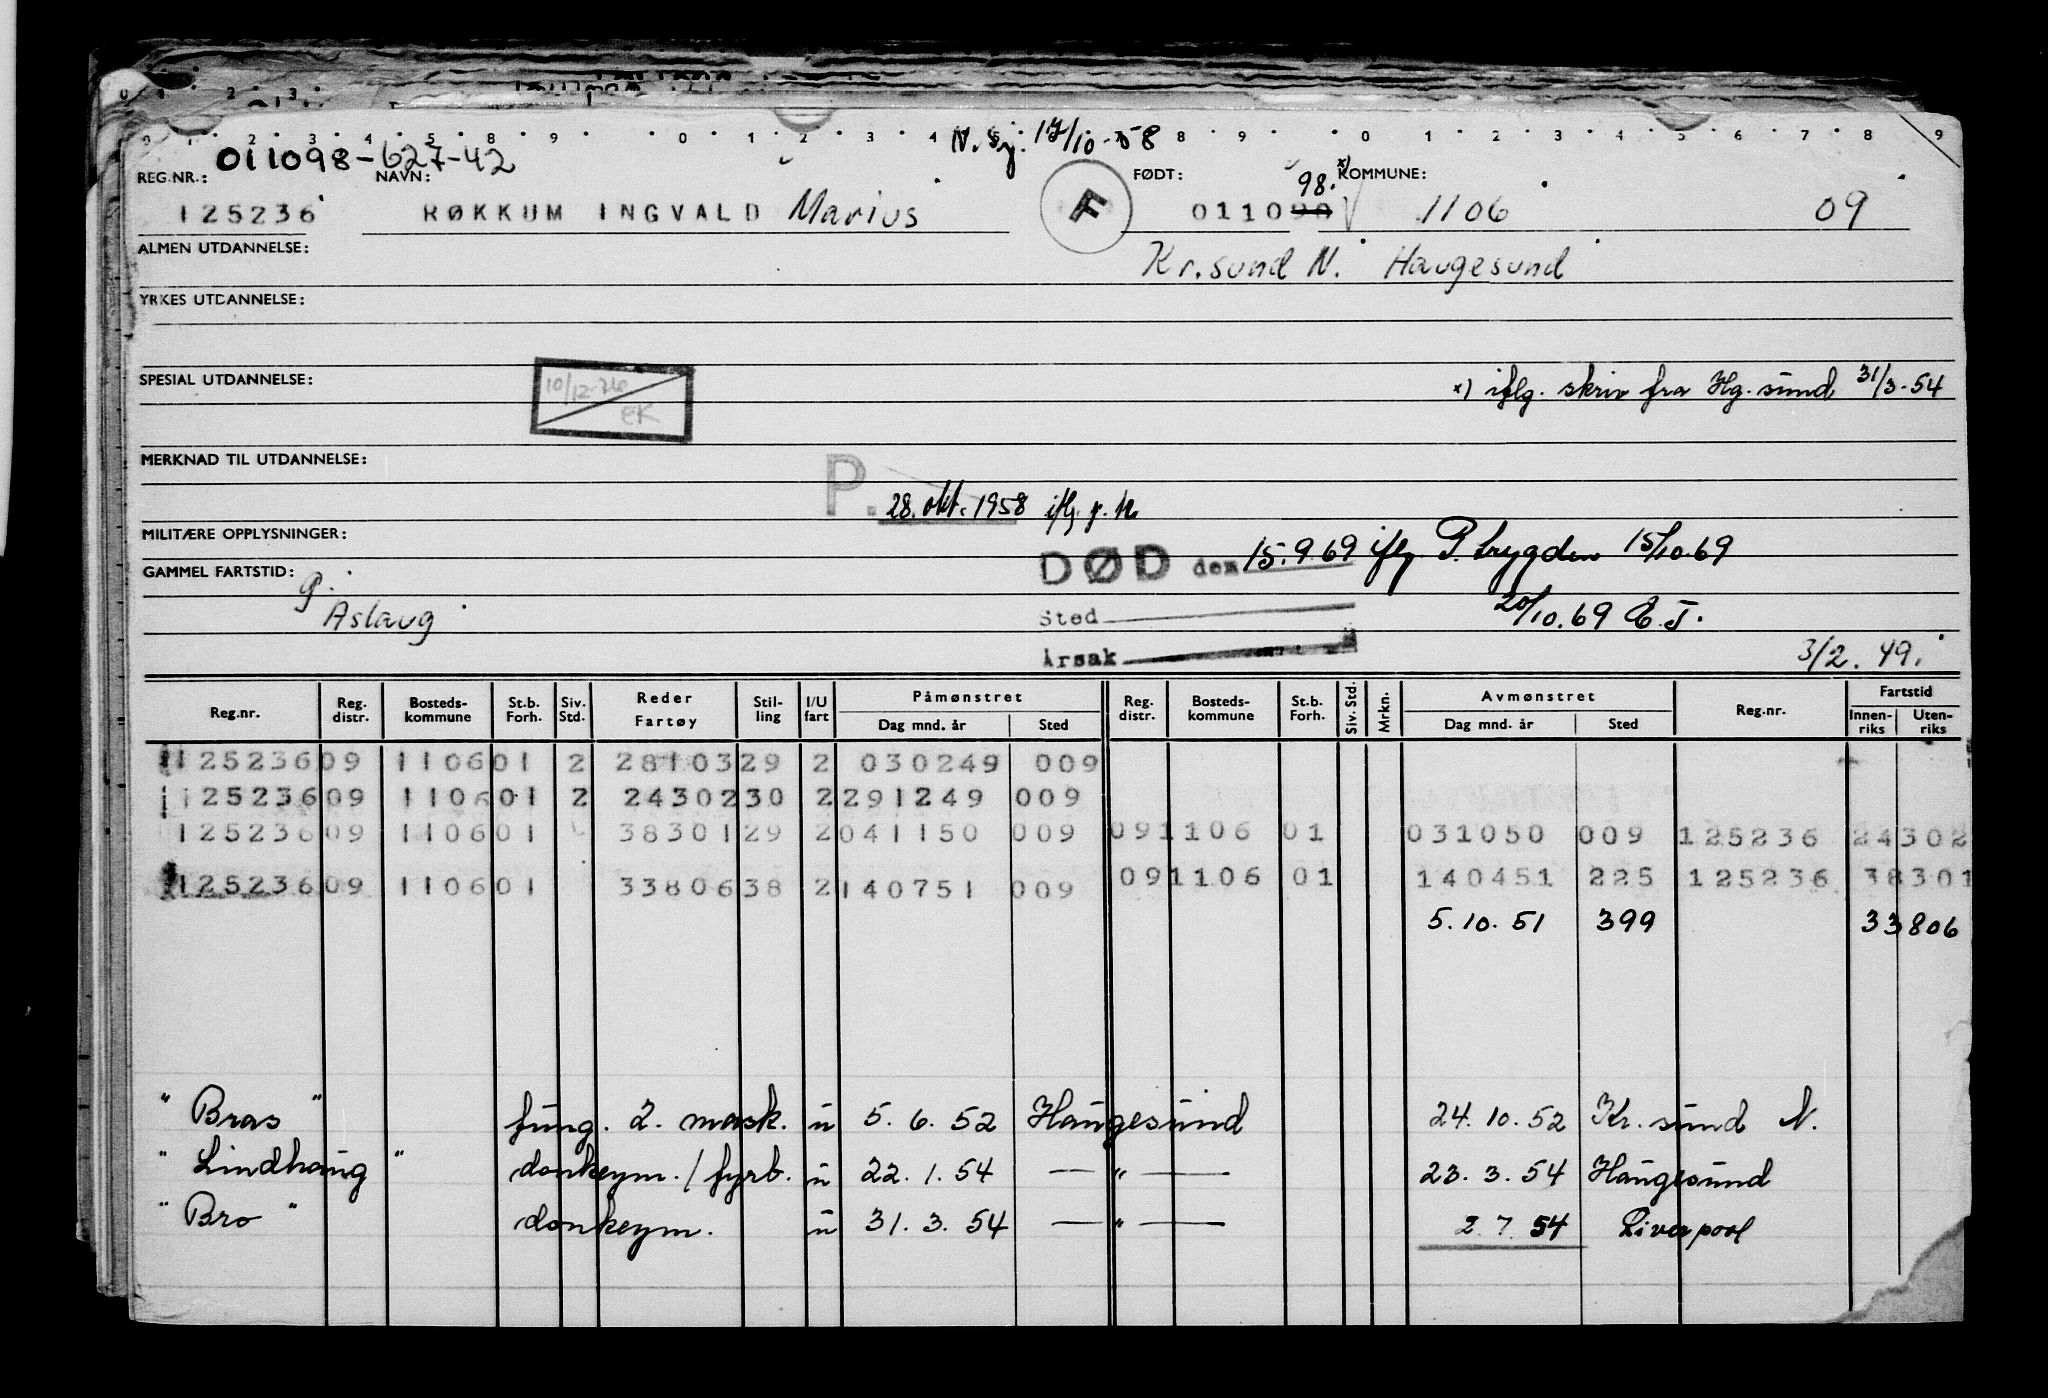 N. sy. 17/10-58
011098-627-42
REG.NR.: NAVN: FØDT: 98. x) KOMMUNE:
125236 RØKKUM INGVALD Marius F 011090 V 1106 09
ALMEN UTDANNELSE: Kr.sund N. Haugesund
YRKES UTDANNELSE:
SPESIAL UTDANNELSE: 10/12-76 EK x) iflg. skriv fra Hg. sund 31/3-54
MERKNAD TIL UTDANNELSE:
P. 28. okt. 1958 iflg. p. n.
MILITÆRE OPPLYSNINGER:
DØD den 15.9.69 iflg P. trygden 15/10.69
GAMMEL FARTSTID: g.
Aslaug Sted 20/10.69 E.J.
Årsak 3/2. 49.
Reg.nr. Reg. distr. Bosteds-kommune St.b. Forh. Siv. Std. Reder Fartøy Stil-ling I/U fart Påmønstret Dag mnd. år Sted Reg. distr. Bosteds-kommune St.b. Forh. Siv. Std. Mrkn. Avmønstret Dag mnd. år Sted Reg.nr. Fartstid Innen-riks Uten-riks
125236 09 1106 01 2 28103 29 2 030249 009
125236 09 1106 01 2 24302 30 2 291249 009
125236 09 1106 01 38301 29 2 041150 009 09 1106 01 031050 009 125236 24302
125236 09 1106 01 33806 38 2 140751 009 09 1106 01 140451 225 125236 38301
5.10.51 399 33806
"Bras" fung. 2. mask. u 5.6.52 Haugesund 24.10.52 Kr. sund N.
"Lindhaug" donkeym./fyrb. u 22.1.54 — " — 23.3.54 Haugesund
"Bro" donkeym. u 31.3.54 — " — 2.7.54 Liverpool